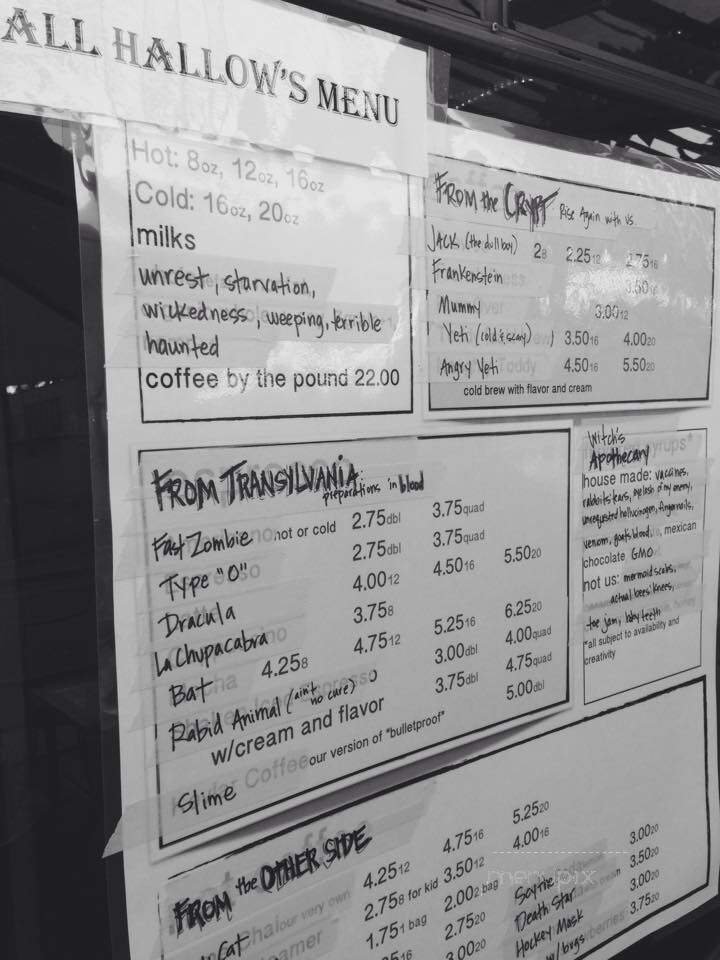 ALL HALLOW'S MENU
Hot: 8oz, 12oz, 16oz
Cold: 16oz, 20oz
milks
unrest, starvation,
wickedness, weeping, terrible
haunted
coffee by the pound 22.00
FROM the CRYPT Rise Again with us
JACK (the dull boy) 2 8 2.25 12 2.75 16
Frankenstein 3.50 16
Mummy 3.00 12
Yeti (cold & scary) 3.50 16 4.00 20
Angry Yeti 4.50 16 5.50 20
cold brew with flavor and cream
FROM TRANSYLVANIA: preparations in blood
Fast Zombie hot or cold 2.75 dbl 3.75 quad
Type "O" 2.75 dbl 3.75 quad
Dracula 4.00 12 4.50 16 5.50 20
La Chupacabra 3.75 8
Bat 4.25 8 4.75 12 5.25 16 6.25 20
Rabid Animal (ain't no cure) 3.00 dbl 4.00 quad
w/cream and flavor 3.75 dbl 4.75 quad
Slime our version of "bulletproof" 5.00 dbl
Witch's
Apothecary
house made: vaccines,
rabbits ears, eyelash of my enemy,
unrequested hallucinogen, fingernails,
venom, goat's blood, mexican
chocolate GMO
not us: mermaid scales,
actual bees' knees,
toe jam, baby teeth
*all subject to availability and
creativity
FROM the OTHER SIDE
4.25 12 4.75 16 5.25 20
Cat 2.75 8 for kid 3.50 12 4.00 16
1.75 1 bag 2.00 2 bag
2.75 20
3.00 20
Scythe 3.00 20
Death Star 3.50 20
Hockey Mask 3.00 20
w/ bugs 3.75 20
menupix